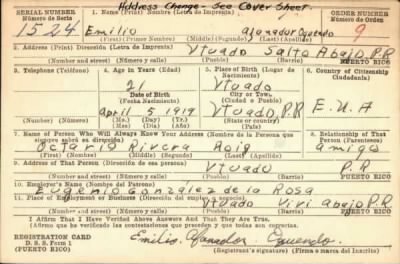 Address Change - See Cover Sheet.
SERIAL NUMBER 1. Name (Print) Nombre (Letra de Imprenta) ORDER NUMBER
Número de Serie Número de Orden
1524 Emilio Afanador Oquendo 9
(First) (Primer Nombre) (Middle) (Segundo) (Last) (Apellido)
2. Address (Print) Dirección (Letra de Imprenta)
Utuado Salto Abajo, P.R
(Number and street) (Número y calle) (Town) (Pueblo) PUERTO RICO
3. Telephone (Teléfono) 4. Age in Years (Edad) 5. Place of Birth (Lugar de Nacimiento) 6. Country of Citizenship (Ciudadanía)
21 Utuado
Date of Birth City or Town,
(Fecha de Nacimiento) (Ciudad o Pueblo)
April 5 1919 Utuado, P.R E.U.A
(Exchange) (Number) (Número) (Mo.) (Day) (Yr.) State or country)
(Mes) (Día) (Año) (Estado o país)
7. Name of Person Who Will Always Know Your Address (Nombre de la Persona que siempre sabrá su dirección) 8. Relationship of That Person (Parentesco)
Octavio Rivera Roig amigo
(First) (Primer Nombre) (Middle) (Segundo) (Last) (Apellido)
9. Address of That Person (Dirección de esa persona)
Utuado P.R
(Number and street) (Número y calle) (Town) (Pueblo) PUERTO RICO
10. Employer's Name (Nombre del Patrono)
Eugenio González de la Rosa
11. Place of Employment or Business (Dirección del empleo o negocio)
Utuado Viví Abajo, P.R
(Number and street) (Número y calle) (Town) (Pueblo) PUERTO RICO
I Affirm That I Have Verified Above Answers And That They are True.
(Afirmo que he verificado las contestaciones que preceden y que todas son correctas.
REGISTRATION CARD
D. S. S. Form 1
(PUERTO RICO)
Emilio Afanador Oquendo
(Registrant's signature) (Firma o marca del Inscrito)